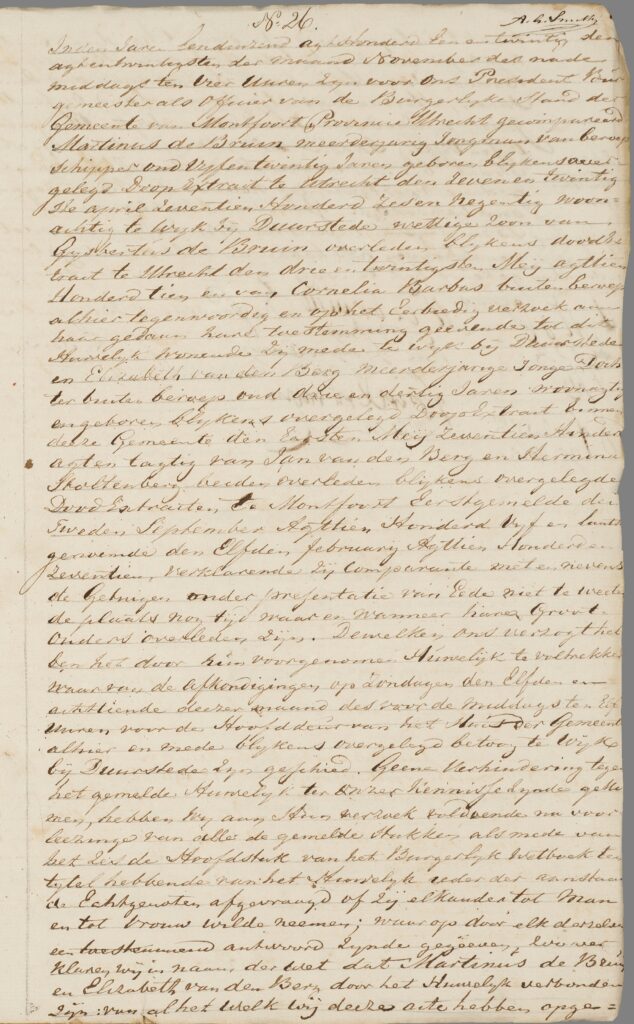 No. 26.
In den Jare Eenduizend agthonderd een en twintig den
agt en twintigsten der maand November des nade
middags ten vier Uuren Zijn voor ons President Bur
gemeester als Officier van de Burgerlyke Stand der
Gemeente van Montfoort Provincie Utrecht gecompareerd
Martinus de Bruin meerderjarig Jongman van beroep
Schipper oud Vyf en twintig Jaren geboren blykens over
gelegd Doop Extrait te Utrecht den Zeven en twintig
ste april Zeventien Honderd Zes en Negentig woon
achtig te Wyk bij Duurstede wettige Zoon van
Gysbertus de Bruin overleden blykens dood Ex
trait te Utrecht den drie en twintigsten Meij agttien
Honderd tien en van Cornelia Barbas buiten beroep
alhier tegenwoordig en op het Eerbiedig verzoek aan
haar gedaan hare toestemming geevende tot dit
Huwelyk Wonende Zij mede te wyk bij Duurstede
en Elizabeth van den Berg meerderjarige Jonge Doch
ter buiten beroep oud drie en dertig Jaren woonagtig
en geboren blykens overgelegd Doop Extrait binnen
deze Gemeente den Eersten Meij Zeventien Honderd
agt en tagtig van Jan van den Berg en Hermina
Stoltenberg beiden overleden blykens overgelegde
Dood Extraiten te Montfoort Eerstgemelde den
Tweden September Agttien Honderd Vyf en laatst
genoemde den Elfden february Agttien Honderd en
Zeventien, verklarende Zij Comparante met en nevens
de Getuigen onder presentatie van Eede niet te weeten
de plaats nog tyd waar en wanneer hare Groot
Ouders overleden Zijn. Dewelken ons verzogt heb
ben het door hun voorgenomen Huwelyk te voltrekken
waar van de afkondigingen op Zondagen den Elfden en
achttiende deezer maand des voor de middags ten Elf
Uuren voor de Hoofddeur van het Huis der Gemeente
alhier en mede blykens overgelegd bewys te Wyk
bij Duurstede Zijn geschied. Geene Verhindering tegen
het gemelde Huwelyk ter onzer kennisse Zynde geko
men, hebben Wy aan Hun verzoek voldoende na voor
leezinge van alle de gemelde Stukken als mede van
het Zesde Hoofdstuk van het Burgerlyk Wetboek ten
tytel hebbende van het Huwelyk ieder der aanstaan
de Echtgenoten afgevraagd of Zij elkander tot Man
en tot Vrouw wilde neemen; waar op door elk derzelven
een toestemmend antwoord Zynde gegeeven, Zoo ver
klaren wij in naam der wet dat Martinus de Bruin
en Elizabeth van den Berg door het Huwelyk verbonden
Zijn: van al het welk wij deeze acte hebben opge=